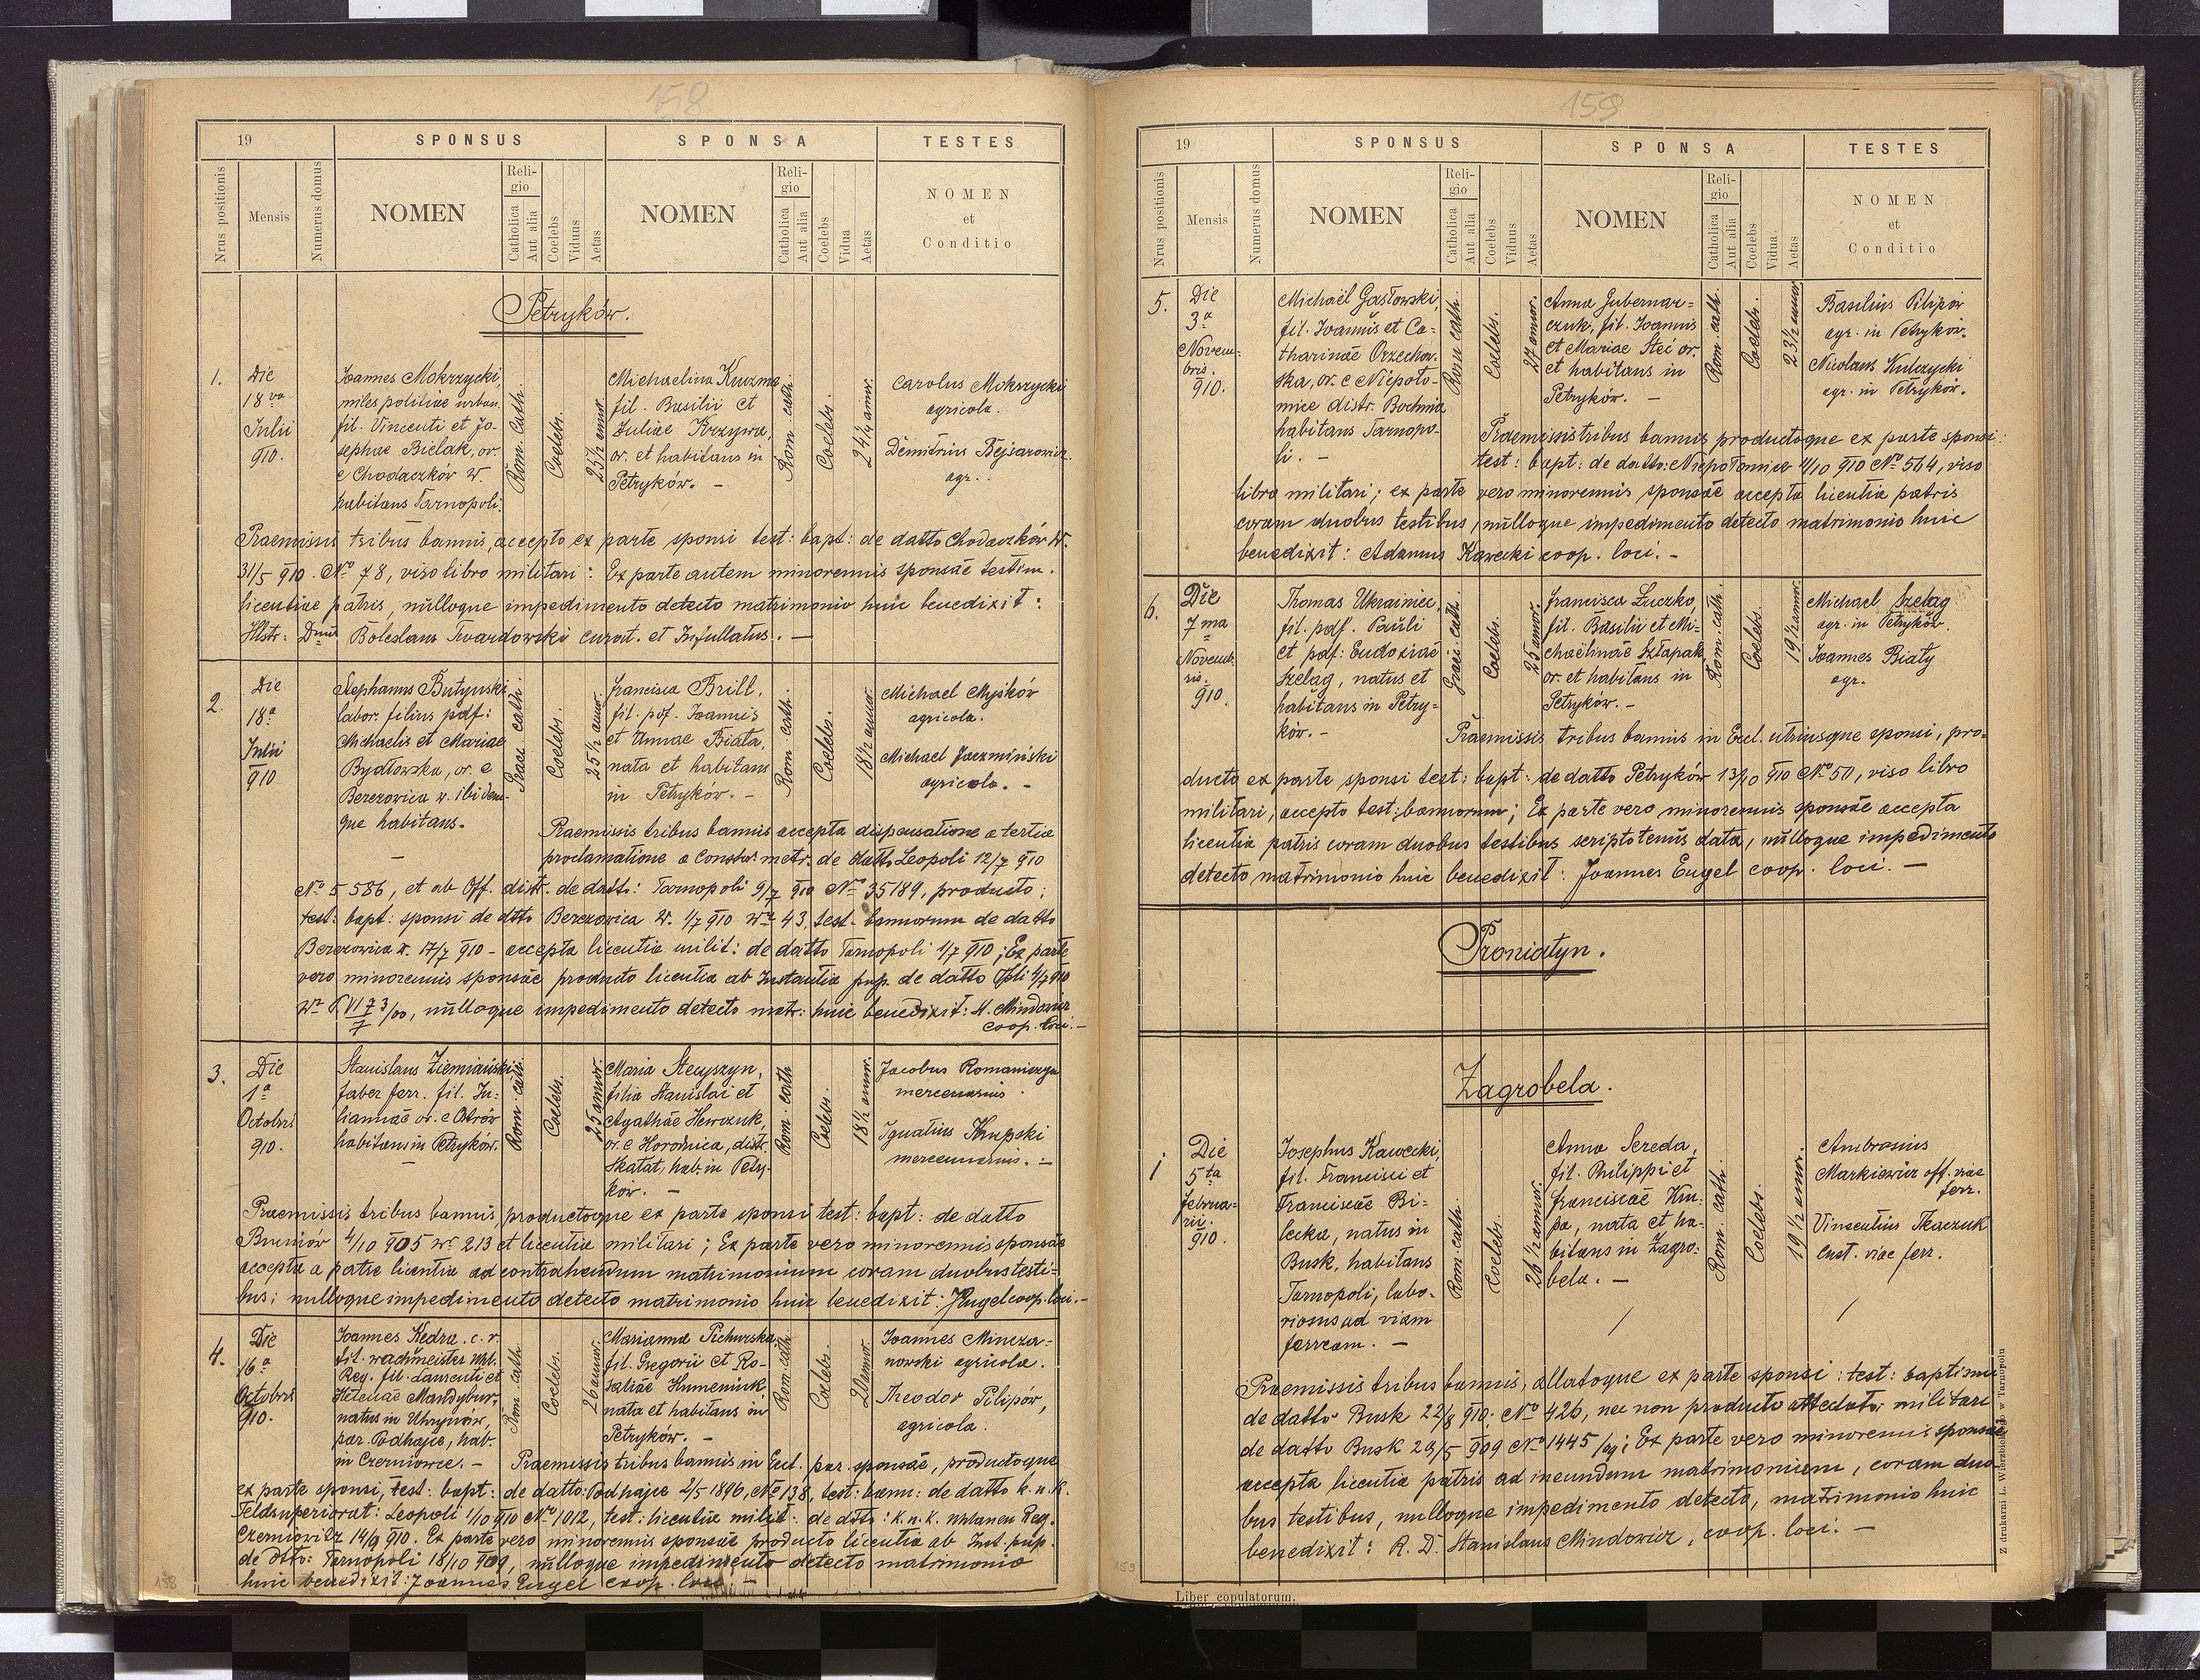 158
19
SPONSUS
SPONSA
TESTES
Nrus positionis
Mensis
Numerus domus
NOMEN
Reli-
gio
Catholica
Aut alia
Coelebs
Viduus
Aetas
NOMEN
Reli-
gio
Catholica
Aut alia
Coelebs
Vidua
Aetas
NOMEN
et
Conditio
Petryków.
1.
Die
18va
Julii
910.
Joannes Mokrzycki,
miles politiae urban.
fil. Vincenti et Jo-
sephae Bielak, or.
e Chodaczków W.
habitans Tarnopoli.
Rom. Cath.
Coelebs.
25½ annor.
Michaelina Kuzma
fil. Basilii et
Juliae Krzywa,
or. et habitans in
Petryków. -
Rom. cath.
Coelebs.
24¼ annor.
Carolus Mokrzycki
agricola.
Demitrius Bejsarowicz.
agr..
Praemissis tribus bannis, accepto ex parte sponsi test: bapt: de datto Chodaczków W.
31/5 910. No 78, viso libro militari: Ex parte autem minorennis sponsae testim.
licentiae patris, nulloque impedimento detecto matrimonio huic benedixit:
Illstr: Dnus Boleslaus Twardowski curat. et Infullatus. -
2.
Die
18a
Julii
910
Stephanus Butynski
labor. filius pdf:
Michaelis et Mariae
Bydłowska, or. e
Berezowica w. ibidem-
que habitans.
-
Graec. cath.
Coelebs.
25½ annor.
Francisca Brill,
fil. pdf. Joannis
et Annae Biała,
nata et habitans
in Petryków. -
Rom. cath.
Coelebs.
18½ annor.
Michael Myśków
agricola.
Michael Jaczmiński
agricola. -
Praemissis tribus bannis accepta dispensatione a tertia
proclamatione a Consist. metr. de datto Leopoli 12/7 910
No 5586, et ab Off. distr. de datto: Tarnopoli 9/7 910 No 35189, producto:
test: bapt: sponsi de dtto Berezowica W. 1/7 910 Nr 43, test. bannorum de datto
Berezowica W. 17/7 910 - accepta licentia milit: de datto Tarnopoli 1/7 910; Ex parte
vero minorennis sponsae producto licentia ab Instantia pup. de datto Tpli 4/7 910
nulloque impedimento detecto matr: huic benedixit: St. Mindowicz
coop. loci. -
3.
Die
1a
Octobris
910.
Stanislaus Ziemiański
faber ferr. fil. Ju-
liannae or. e Otrów
habitans in Petryków.
-
Rom. cath.
Coelebs.
25 annor.
Maria Stecyszyn,
filia Stanislai et
Agathae Hewczuk,
or. e Horodnica, distr.
Skałat, hab. in Petry-
ków. -
Rom. cath
Coelebs.
18½ annor.
Jacobus Romaniszyn
mercenarius.
Ignatius Krupski
mercennarius. -
Praemissis tribus bannis, productoque ex parte sponsi test: bapt: de datto
4/10 905 Nr 213 et licentia militari; Ex parte vero minorennis sponsae
accepta a patre licentia ad contrahendum matrimonium coram duobus testi-
bus; nulloque impedimento detecto matrimonio huic benedixit: J Engel coop. loci. -
4.
Die
16a
Octobris
910.
Joannes Kedra. c. r.
tit. wachmeister Uhl.
Reg. fil. Laurenti et
Helenae Mandybur,
natus in Uhrynów,
par. Podhajce, hab.
in Czerniowce. -
Rom cath
Coelebs.
26 annor.
Marianna Pichurska
fil. Gregorii et Ro-
saliae Humeniuk
nata et habitans in
Petryków. -
Rom. cath
Coelebs.
20 annor.
Joannes Mincza-
nowski agricola.
Theodor Pilipów,
agricola.
Praemissis tribus bannis in Eccl. par. sponsae, productoque
ex parte sponsi, test: bapt: de datto: Podhajce 2/5 1896, No 138, test: bann: de datto k. u. k.
Feldsuperiorat: Leopoli 1/10 910 No 1012, test: licentiae milit: de dtto: K. u. K. Uhlanen Reg.
Czerniovitz 14/9 910. Ex parte vero minorennis sponsae producto licentia ab Inst. pup.
de dtto: Tarnopoli 18/10 909, nulloque impedimento detecto matrimonio
huic benedixit: Joannes Engel coop. loci -
158
159
19
SPONSUS
SPONSA
TESTES
Nrus positionis
Mensis
Numerus domus
NOMEN
Reli-
gio
Catholica
Aut alia
Coelebs
Viduus
Aetas
NOMEN
Reli-
gio
Catholica
Aut alia
Coelebs
Vidua
Aetas
NOMEN
et
Conditio
5.
Die
3a
Novem-
bris.
910.
Michaël Gasłowski,
fil. Joannis et Ca-
tharinae Orzechow-
ska, or. e Niepoło-
mice distr. Bochnia
habitans Tarnopo-
li. -
Rom cath.
Coelebs.
27 annor.
Anna Gubernar-
czuk, fil. Joannis
et Mariae Steć or.
et habitans in
Petryków. -
Rom. cath.
Coelebs.
23½ annor
Basilius Pilipów
agr. in Petryków.
Nicolaus Kulczycki
agr. in Petryków.
Praemissis tribus bannis productoque ex parte sponsi
test: bapt: de datto: Niepołomice 4/10 910 No 564, viso
libro militari; ex parte vero minorennis sponsae accepta licentia patris
coram duobus testibus, nulloque impedimento detecto matrimonio huic
benedixit: Adamus Kawecki coop. loci. -
6.
Die
7ma
Novemb-
ris.
910.
Thomas Ukrainiec,
fil. pdf. Pauli
et pdf: Eudoxiae
Szeląg, natus et
habitans in Petry-
ków. -
Graec. cath.
Coelebs.
25 annor.
Francisca Łuczko,
fil. Basilii et Mi-
chaëlinae Szłapak
or. et habitans in
Petryków. -
Rom. cath.
Coelebs.
19½ annor.
Michael Szeląg
agr. in Petryków.
Joannes Biały
agr.
Praemissis tribus bannis in Eccl. utriusque sponsi, pro-
ducto ex parte sponsi test: bapt: de datto Petryków 13/10 910 No 50, viso libro
militari, accepto test: bannorum; Ex parte vero minorennis sponsae accepta
licentia patris coram duobus testibus scriptotenus data, nulloque impedimento
detecto matrimonio huic benedixit: Joannes Engel coop. loci. -
Proniatyn.
Zagrobela.
1
Die
5ta
Februa-
rii.
910.
Josephus Kawecki,
fil. Francisci et
Franciscae Bi-
lecka, natus in
Busk, habitans
Tarnopoli, labo-
riosus ad viam
ferream. -
Rom. cath.
Coelebs.
26½ annor.
Anna Sereda,
fil. Philippi et
Franciscae Kru-
pa, nata et ha-
bitans in Zagro-
bela. -
Rom. cath.
Coelebs.
19½ annor.
Ambrosius
Markiewicz off. viae
ferr.
Vincentius Tkaczuk
cust. viae ferr.
Praemissis tribus bannis, allatoque ex parte sponsi: test: baptismi
de datto Busk 22/8 910; No 426, nec non producto attestato militari
de datto Busk 29/5 909 No 1445/09; Ex parte vero minorennis sponsae
accepta licentia patris ad ineundum matrimonium, coram duo-
bus testibus, nulloque impedimento detecto, matrimonio huic
benedixit: R. D. Stanislaus Mindowicz, coop. loci. -
Z drukarni L. Wierzbickiego w Tarnopolu
159
Liber copulatorum.